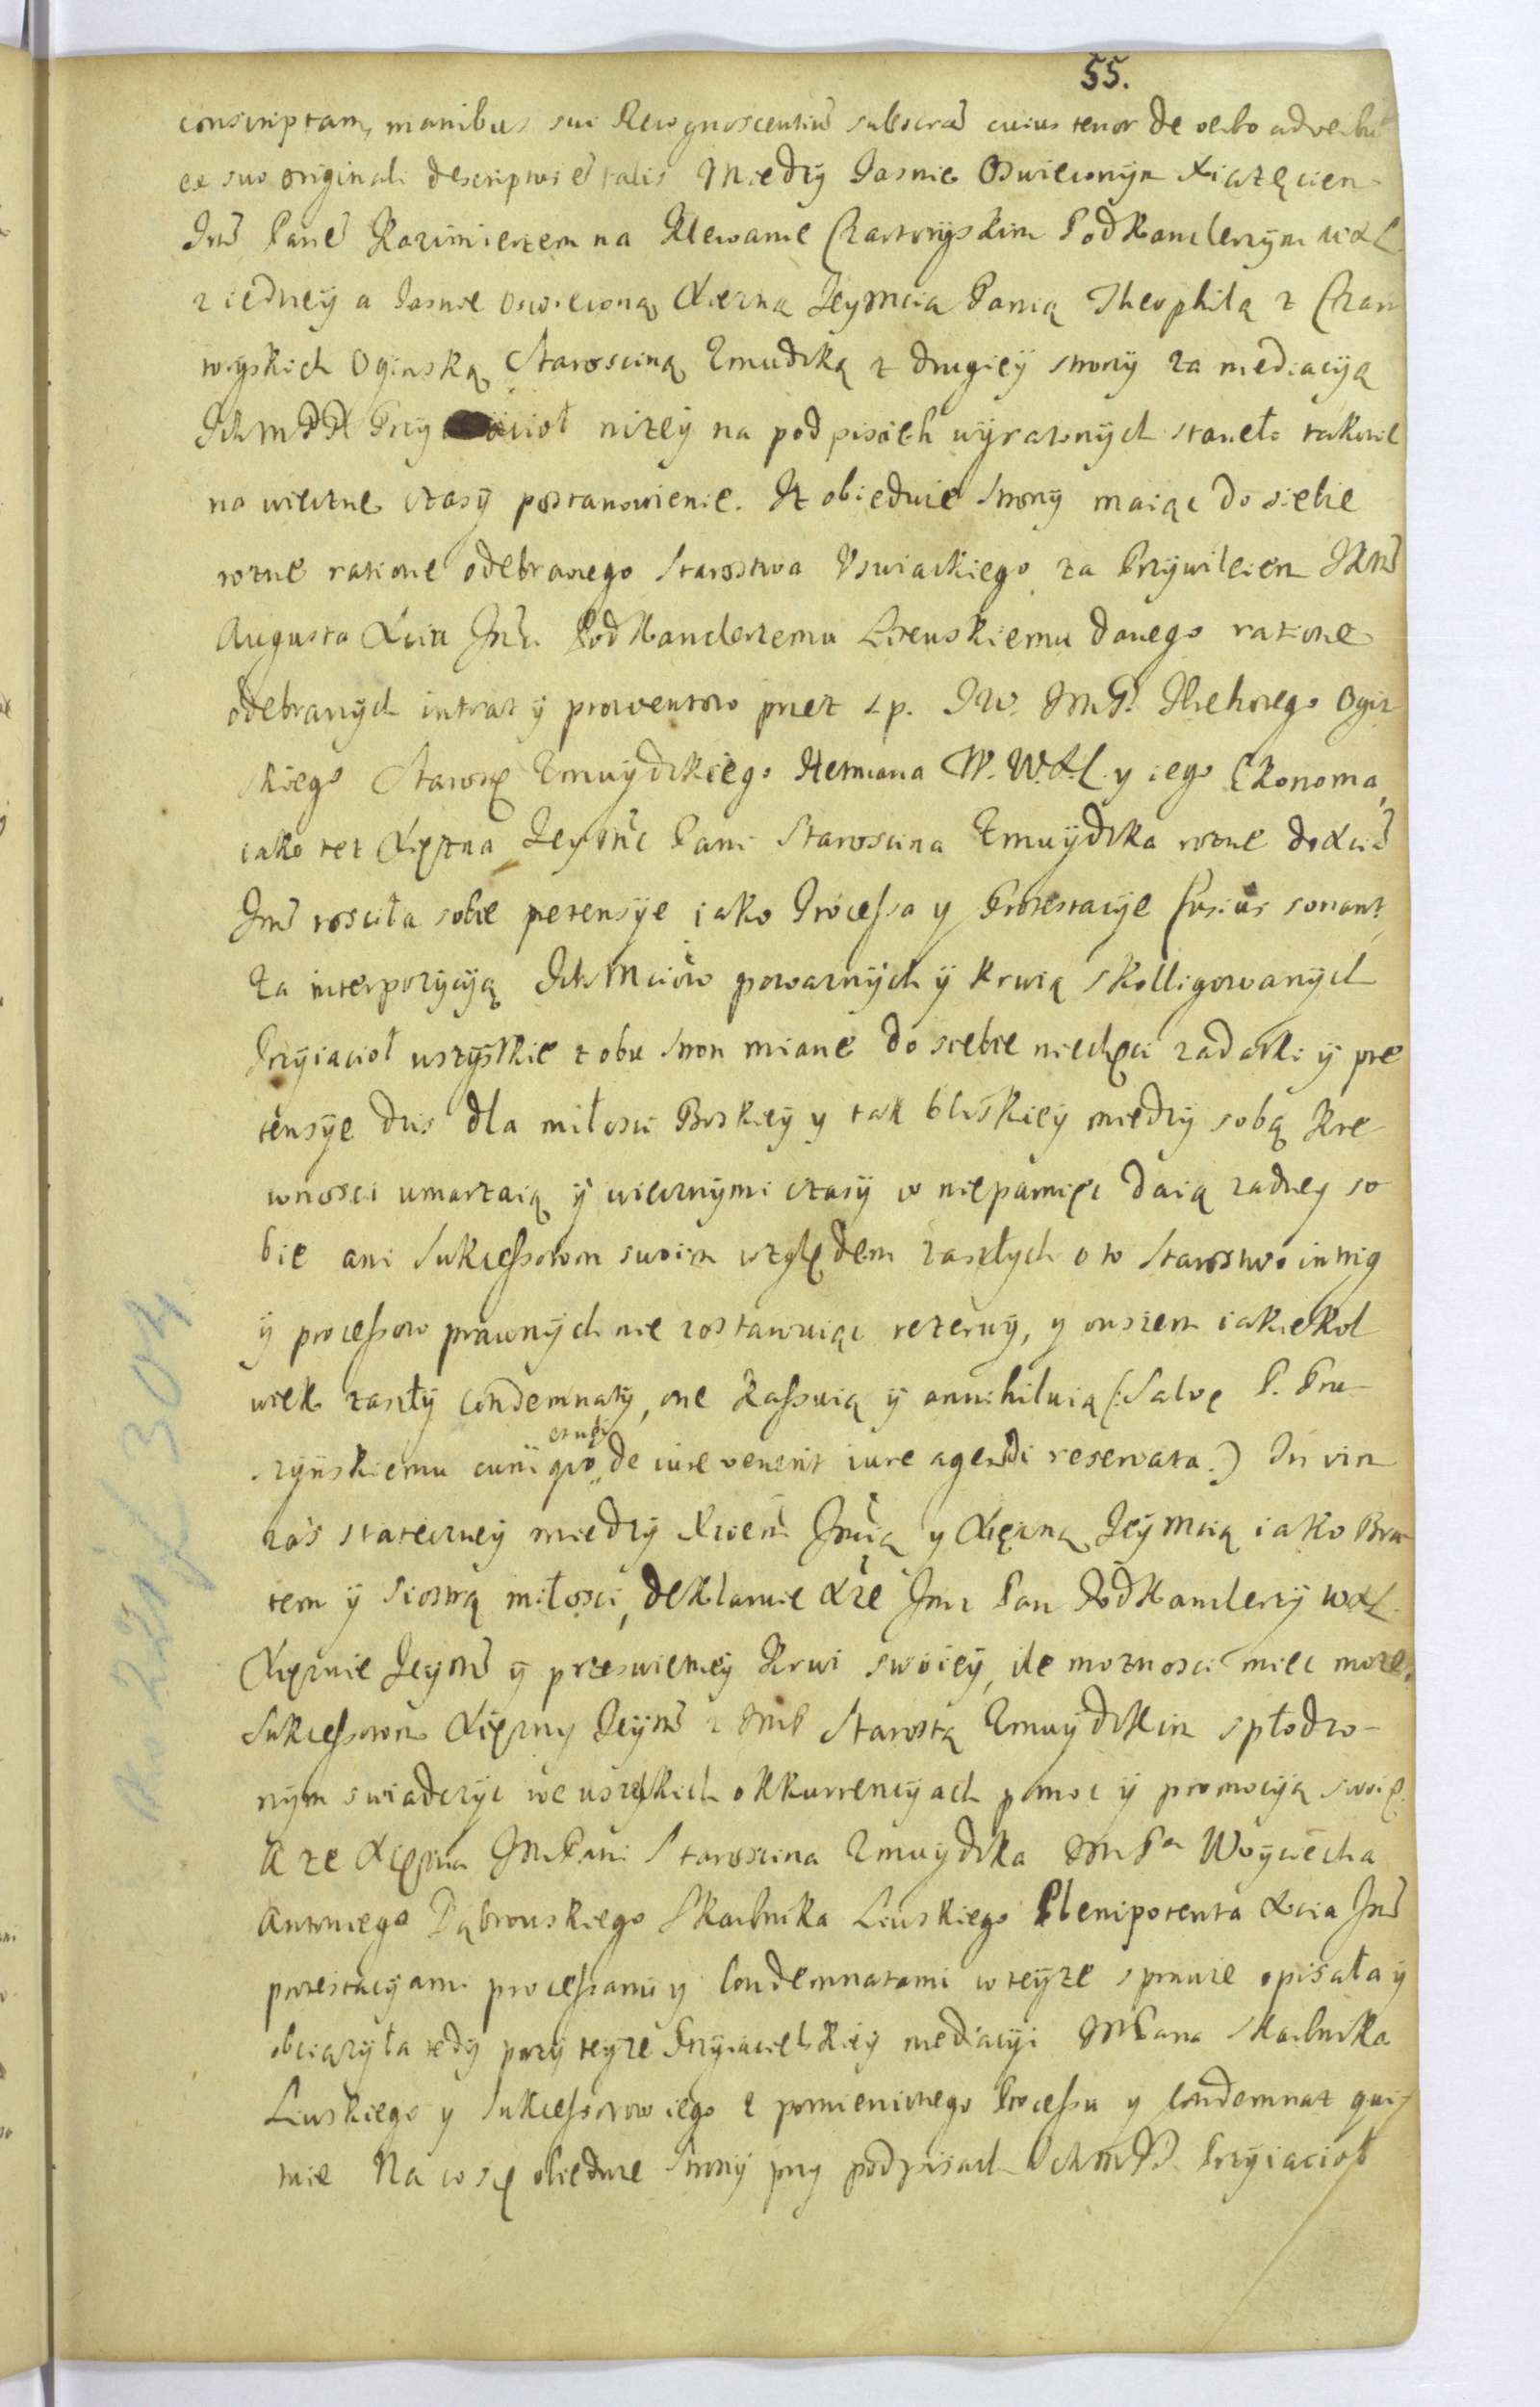 55.
conscriptam, manibus sui Recognoscentiu subscra cuius tenor de verbo ad verbu
ex suo originali descriptus e talis Miedzy Jasnie Oswieconym Xiązęciem
Jm Pane Kazimierzem na Klewanie Czartoryskim PodKanclerzym WXL
z iedney a Jasnie oswieconą Xięzną Jeymcią Panią Theophilą z Czar
toryskich Oginską Staroscina Zmudzką z drugiey strony za mediacyą
IchmPP Przyiacioł nizey na podpisach wyrazonych staneło takowe
na wieczne czasy postanowienie. Iz obiedwie strony maiąc do siebie
rozne ratione odebranego Starostwa Uswiackiego za Przywileiem JKM
Augusta Xciu Jmci PodKanclerzemu Litewskiemu danego ratione
odebranych intrat y prowentow przez s.p. JW. JmP. Hrehorego Ogin
skiego Starostę Zmuydzkiego Hetmana W. W.X.L. y iego Ekonoma,
iako tez Xięzna Jeymc Pani Staroscina Zmuydzka rozne do Xcia
Jm rosciła sobie pretensye iako Processa y Protestacye fusius sonant,
za interpozycyą IchMciow powaznych y krwią skolligowanych
Przyiacioł wszystkie z obu stron miane do siebie niechęci zadatki y pre
tensye dzis dla miłosci Boskiey y tak bliskiey miedzy sobą kre
wnosci umarzaią y wiecznymi czasy w niepamięc daią zadney so
bie ani Sukcessorom swoim względem zaszłych o to Starostwo intrig
y processow prawnych nie zostawuiąc rezerwy, y owszem iakiekol
wiek zaszły condemnaty, one kassuią y annihiluią (:Salvo P. Pru
szynskiemu cum quo de iure venerit iure agendi reservata:) In vim
zas stateczney miedzy Xciem Jmcią y Xięzną Jeymcią iako Bra
tem y Siostrą miłosci, deklaruie Xże Jmc Pan PodKanclerzy WXL
Xięznie Jeym y przeswietney Krwi swoiey, ile moznosci miec moze,
Sukcessorom Xięzny Jeym z JmP Starostą Zmuydzkim spłodzo-
nym swiadczyc we wszytkich okkurrencyach pomoc y promocyą swoię.
A ze Xięzna JmPani Staroscina Zmuydzka JmPa Woyciecha
Antoniego Dąbrowskiego Skarbnika Plenipotenta Xcia Jm
protestacyami processami y Condemnatami w teyze sprawie opisała y
obciązyła tedy przy teyze Przyiacielskiey mediacyi JmPana Skarbnika
y Sukcessorow iego z pomienionego Processu y Condemnat qui
tuie Na co się obiedwie strony przy podpisach IchmPP Przyiacioł